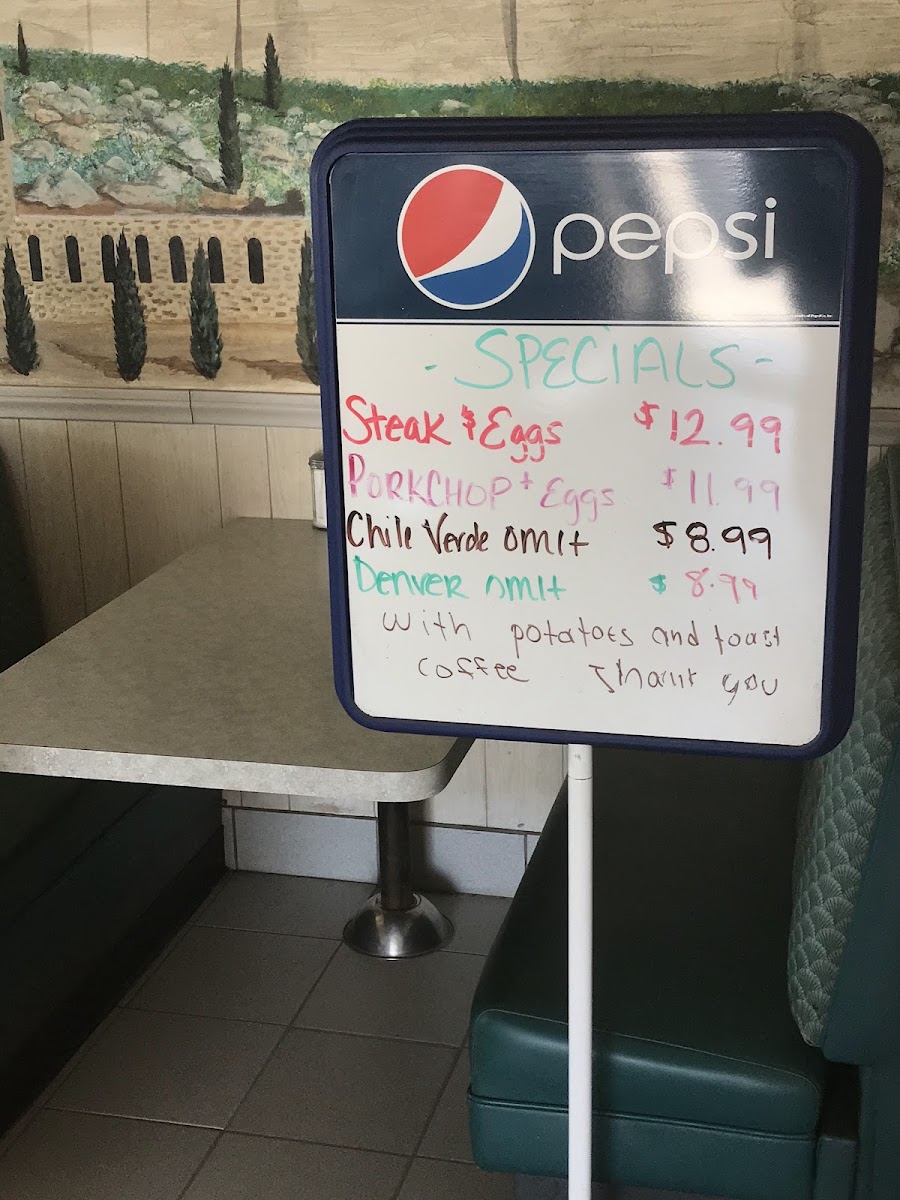 pepsi
- SPECIALS -
Steak & Eggs $12.99
PORKCHOP + Eggs $11.99
Chile Verde omlt $8.99
Denver omlt $8.99
with potatoes and toast
coffee Thank you